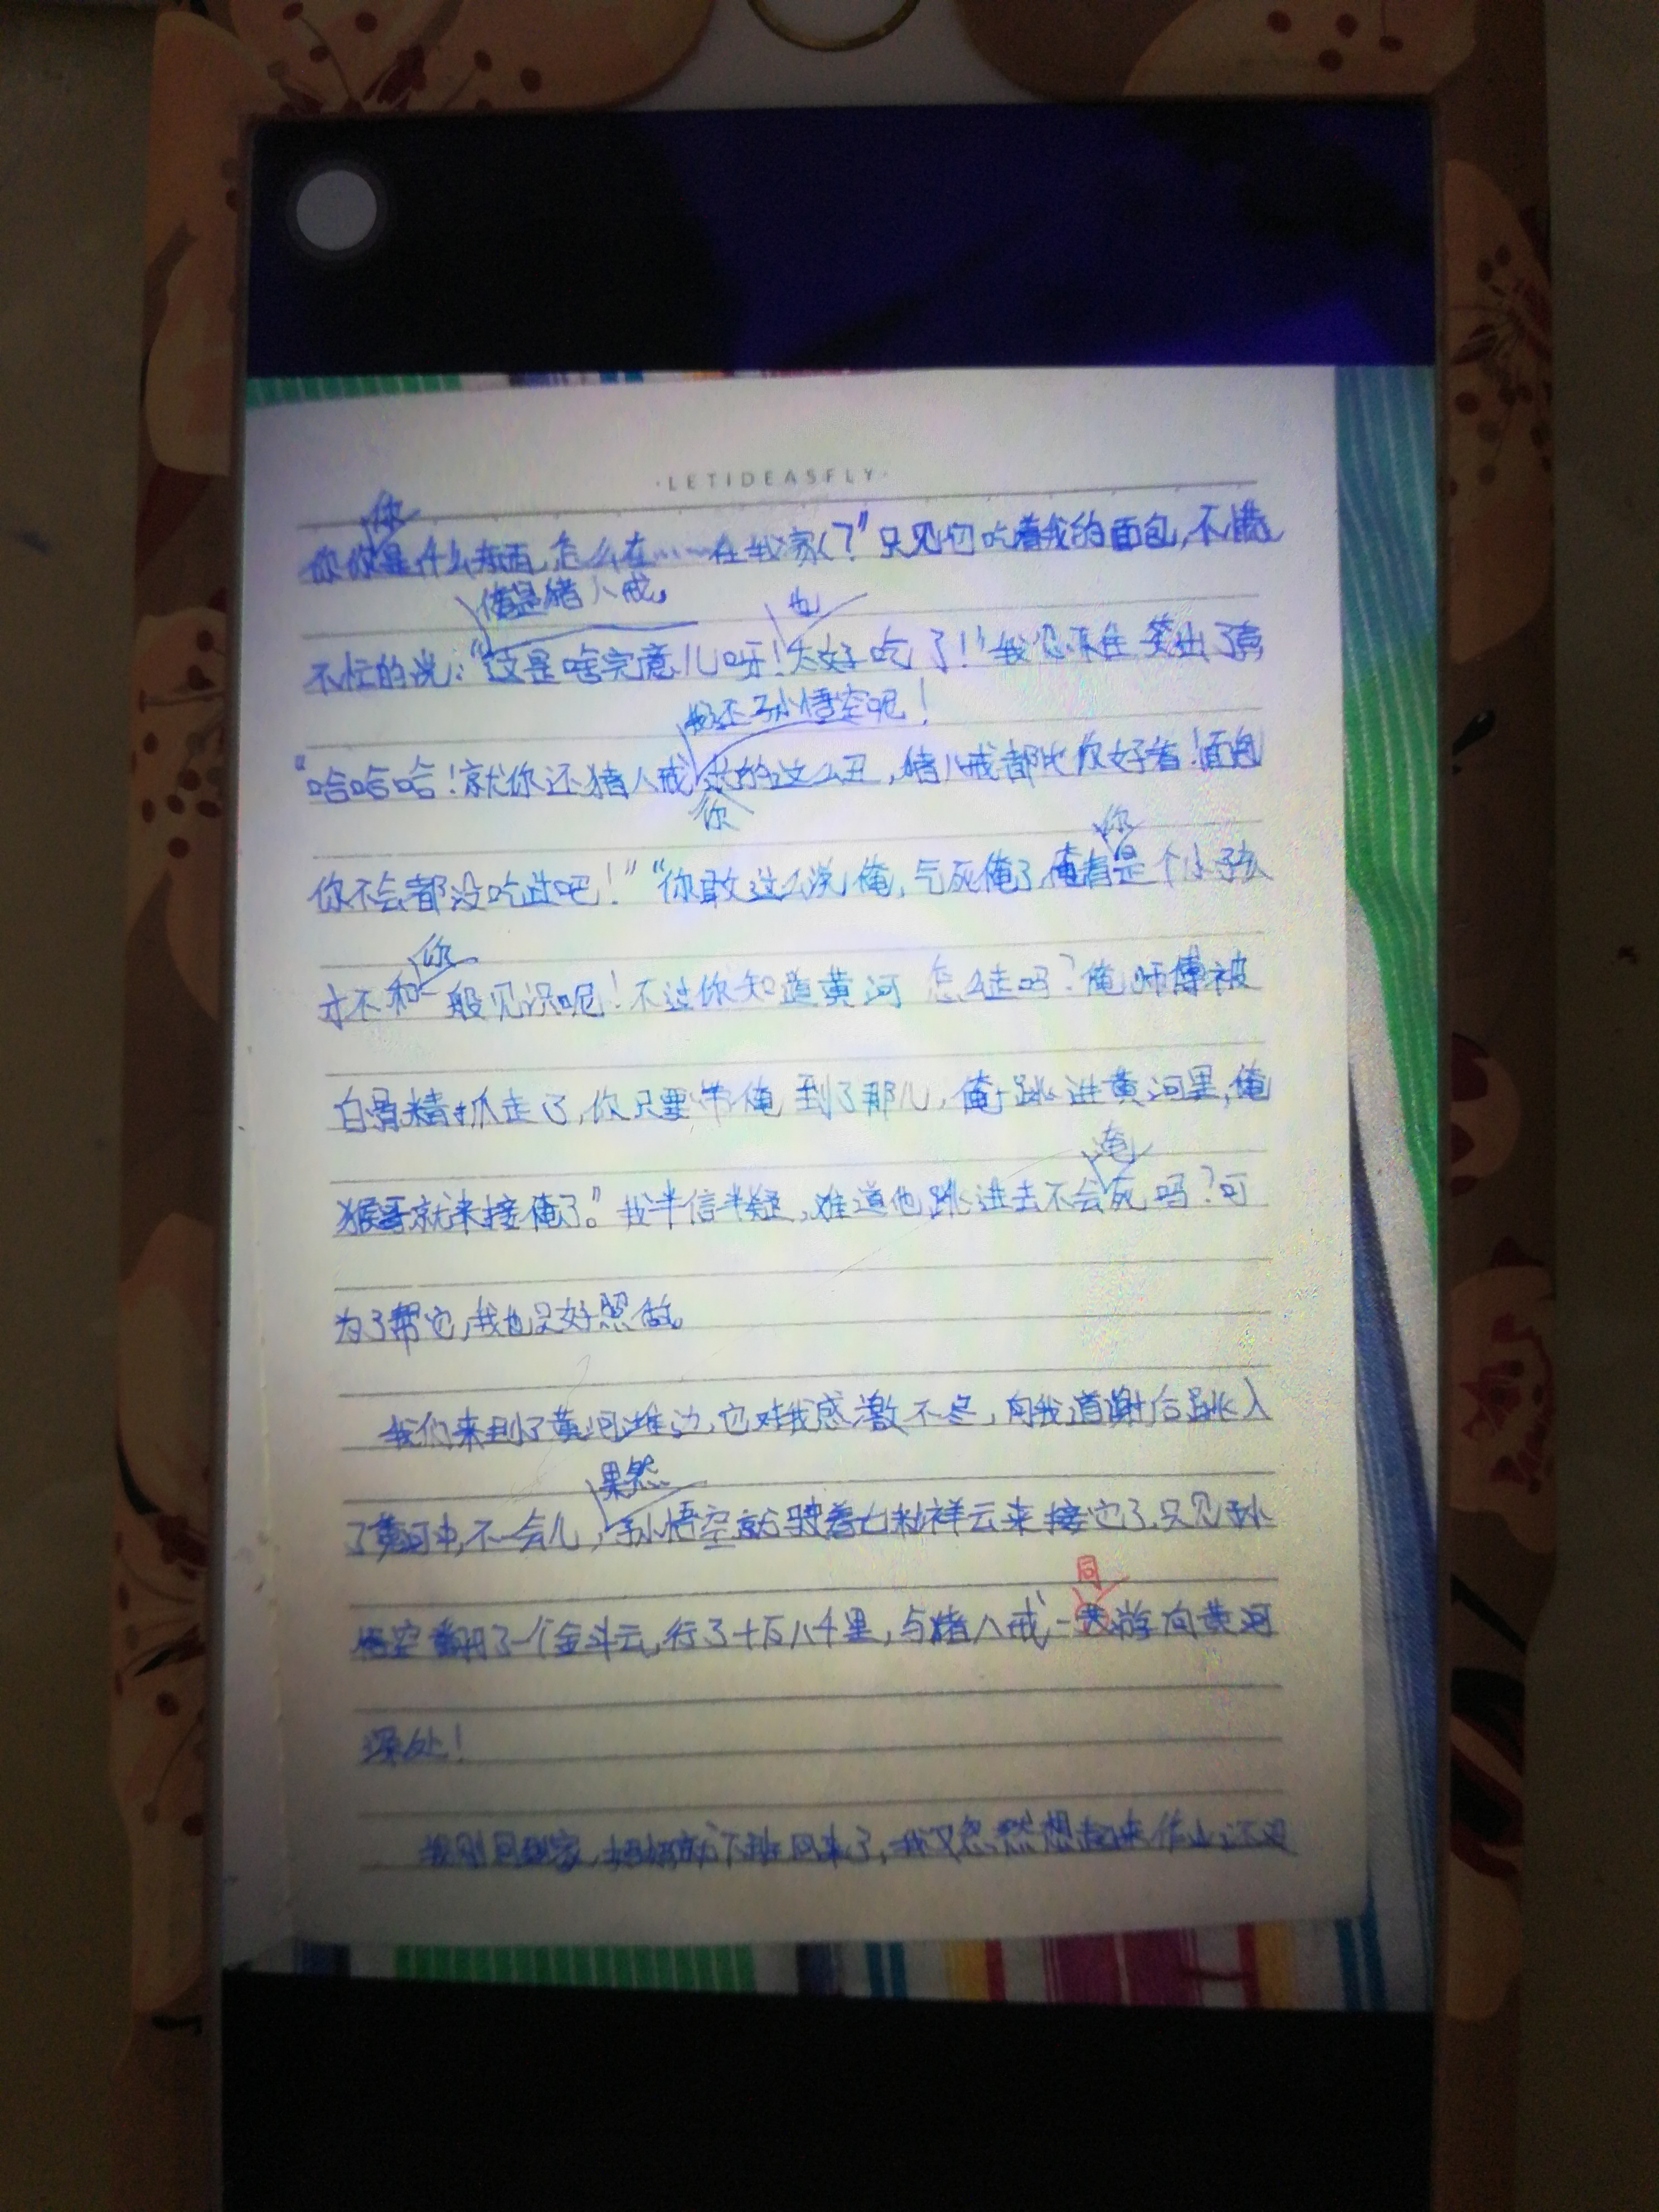 ·LETIDEASFLY·
你
你你是什么东西,怎么在……在我家(?"只见它吃着我的面包,不慌
俺是猪八戒,
也
不忙的说:"这是啥完意儿呀!太好吃了!"我忍不住笑出了声
我还孙悟空呢!
"哈哈哈!就你还猪八戒 长的这么丑,猪八戒都比你好看!面包
你
你
你不会都没吃过吧!""你敢这么说俺,气死俺了,俺看是个小孩
你
才不和一般见识呢!不过你知道黄河怎么走吗?俺师傅被
白骨精抓走了,你只要带俺到了那儿,俺跳进黄河里,俺
淹
猴哥就来接俺了。"我半信半疑,难道他跳进去不会死吗?可
为了帮它,我也只好照做。
我们来到了黄河边,它对我感激不尽,向我道谢后跳入
果然
了黄河中,不一会儿,孙悟空就踩着七彩祥云来接它了,只见孙
同
悟空翻了一个金斗云,行了十万八千里,与猪八戒一游向黄河
深处!
我刚回到家,妈妈就下班回来了,我又忽然想起来作业还没